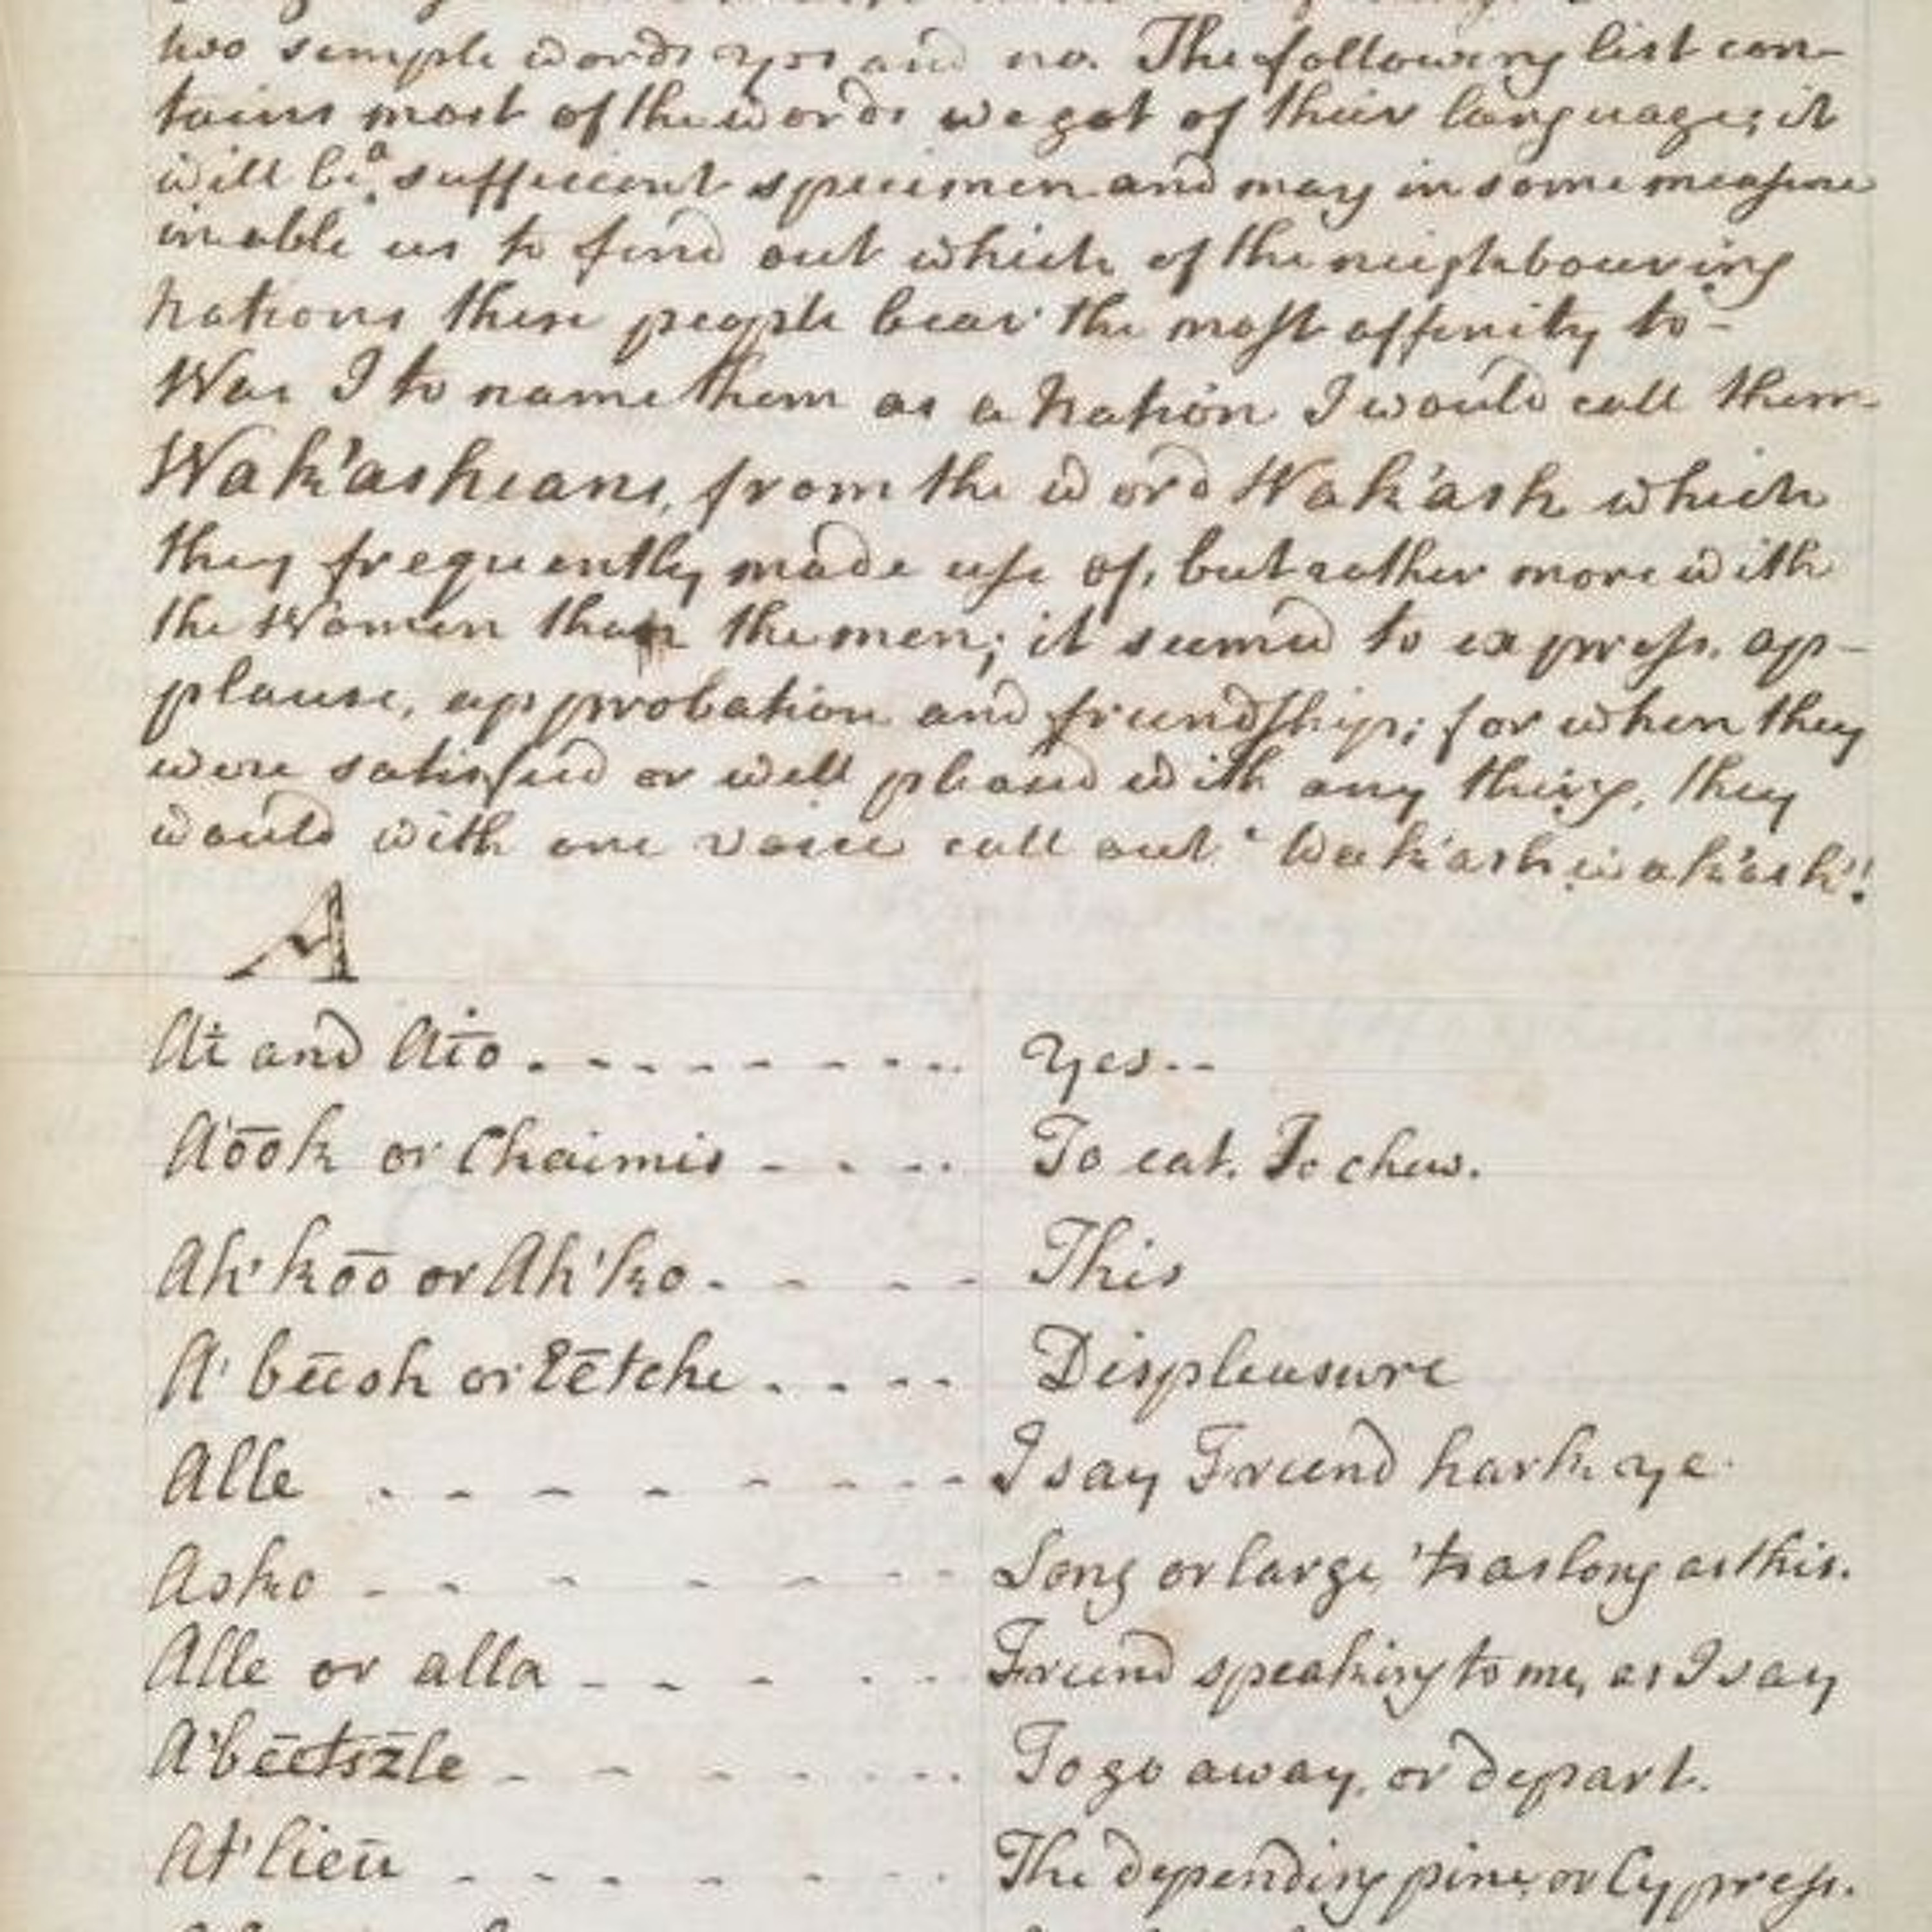 two simple words yes and no. The following list con-
tains most of the words we got of their language; it
will be a sufficient specimen and may in some measure
inable us to find out which of the neighbouring
Nations these people bear the most affinity to -
Was I to name them as a Nation I would call them
Wak'ashians, from the word Wak'ash which
they frequently made use of, but rather more with
the Women than the men; it seemed to express ap-
plause, approbation and friendship; for when they
were satisfied or well pleased with any thing, they
would with one voice call out Wak'ash wak'ash!
A
Ai and Aīo . - - - - - - - . Yes--
A'ōōk or Chaimis - - - - To eat. To chew.
Ah'kōō or Ah'ko - - - - This
A'beesh or Eētche . . - - Displeasure
Alle - - - - - - - - I say Friend hark ye
Asko - - - - - - - Long or large 'tis as long as this.
Alle or alla - - - - - Friend speaking to me, as I say
A'bēētszle - - - - - - To go away, or depart.
At'lieū - - - - - - The depending pine, or Cypress.